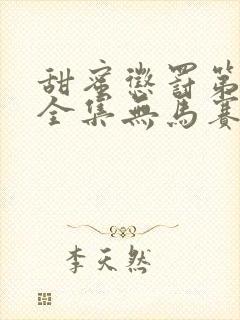 甜蜜懲罰第
全集無馬賽
李天然